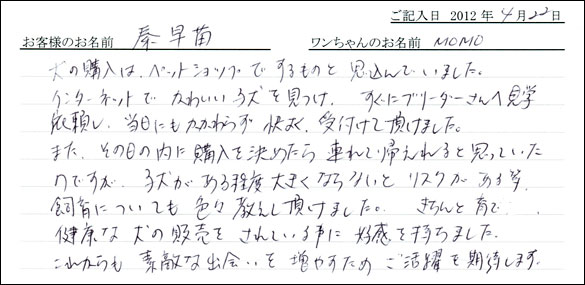 ご記入日 2012年4月22日
お客様のお名前 秦早苗 ワンちゃんのお名前 MOMO
犬の購入は、ペットショップでするものと思込んでいました。
インターネットでかわいい子犬を見つけ、すぐにブリーダーさんへ見学
依頼し、当日にもかかわらず快よく、受付けて頂けました。
また、その日の内に購入を決めたら連れて帰えれると思っていた
のですが、子犬がある程度大きくならないとリスクがある等、
飼育についても色々教えて頂けました。きちんと育て、
健康な犬の販売をされている事に好感を持ちました。
これからも素敵な出会いを増やすためご活躍を期待します。